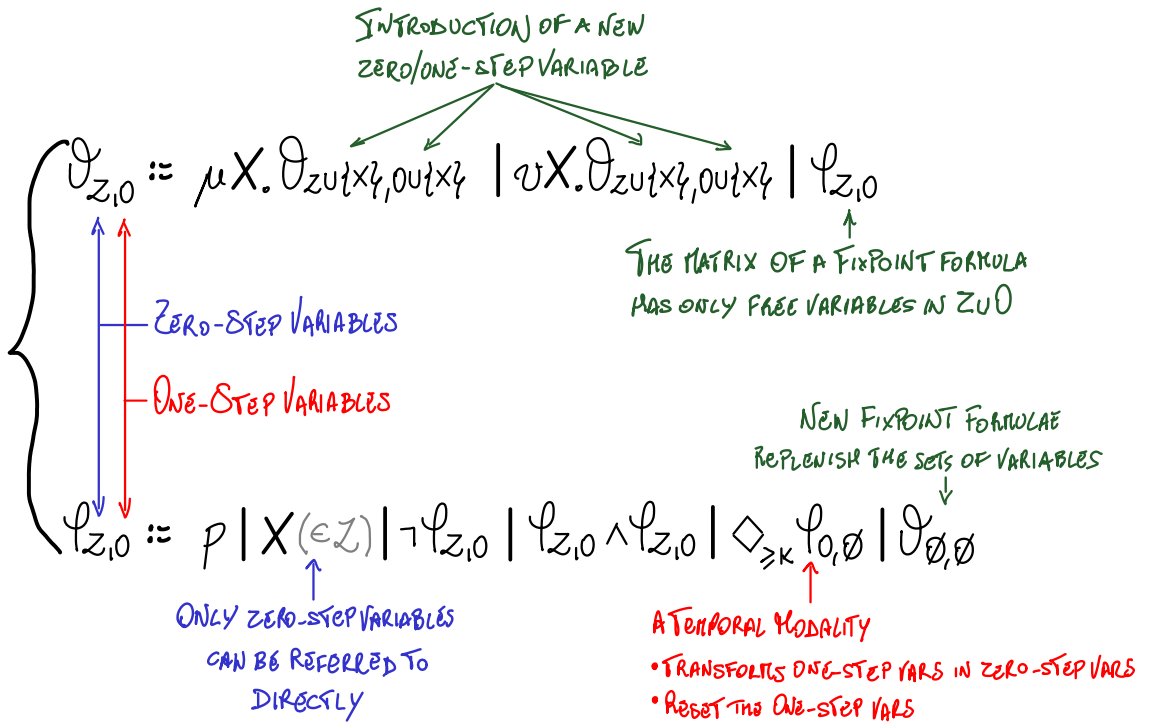 INTRODUCTION OF A NEW
ZERO/ONE-STEP VARIABLE
ϑ_{Z,O} ::= μX.ϑ_{Z∪{X},O∪{X}} | νX.ϑ_{Z∪{X},O∪{X}} | φ_{Z,O}
THE MATRIX OF A FIXPOINT FORMULA
HAS ONLY FREE VARIABLES IN Z∪O
ZERO-STEP VARIABLES
ONE-STEP VARIABLES
NEW FIXPOINT FORMULAE
REPLENISH THE SETS OF VARIABLES
φ_{Z,O} ::= p | X (∈Z) | ¬φ_{Z,O} | φ_{Z,O} ∧ φ_{Z,O} | ◇_{≥K} φ_{O,∅} | ϑ_{∅,∅}
ONLY ZERO-STEP VARIABLES
CAN BE REFERRED TO
DIRECTLY
A TEMPORAL MODALITY
• TRANSFORMS ONE-STEP VARS IN ZERO-STEP VARS
• RESET THE ONE-STEP VARS